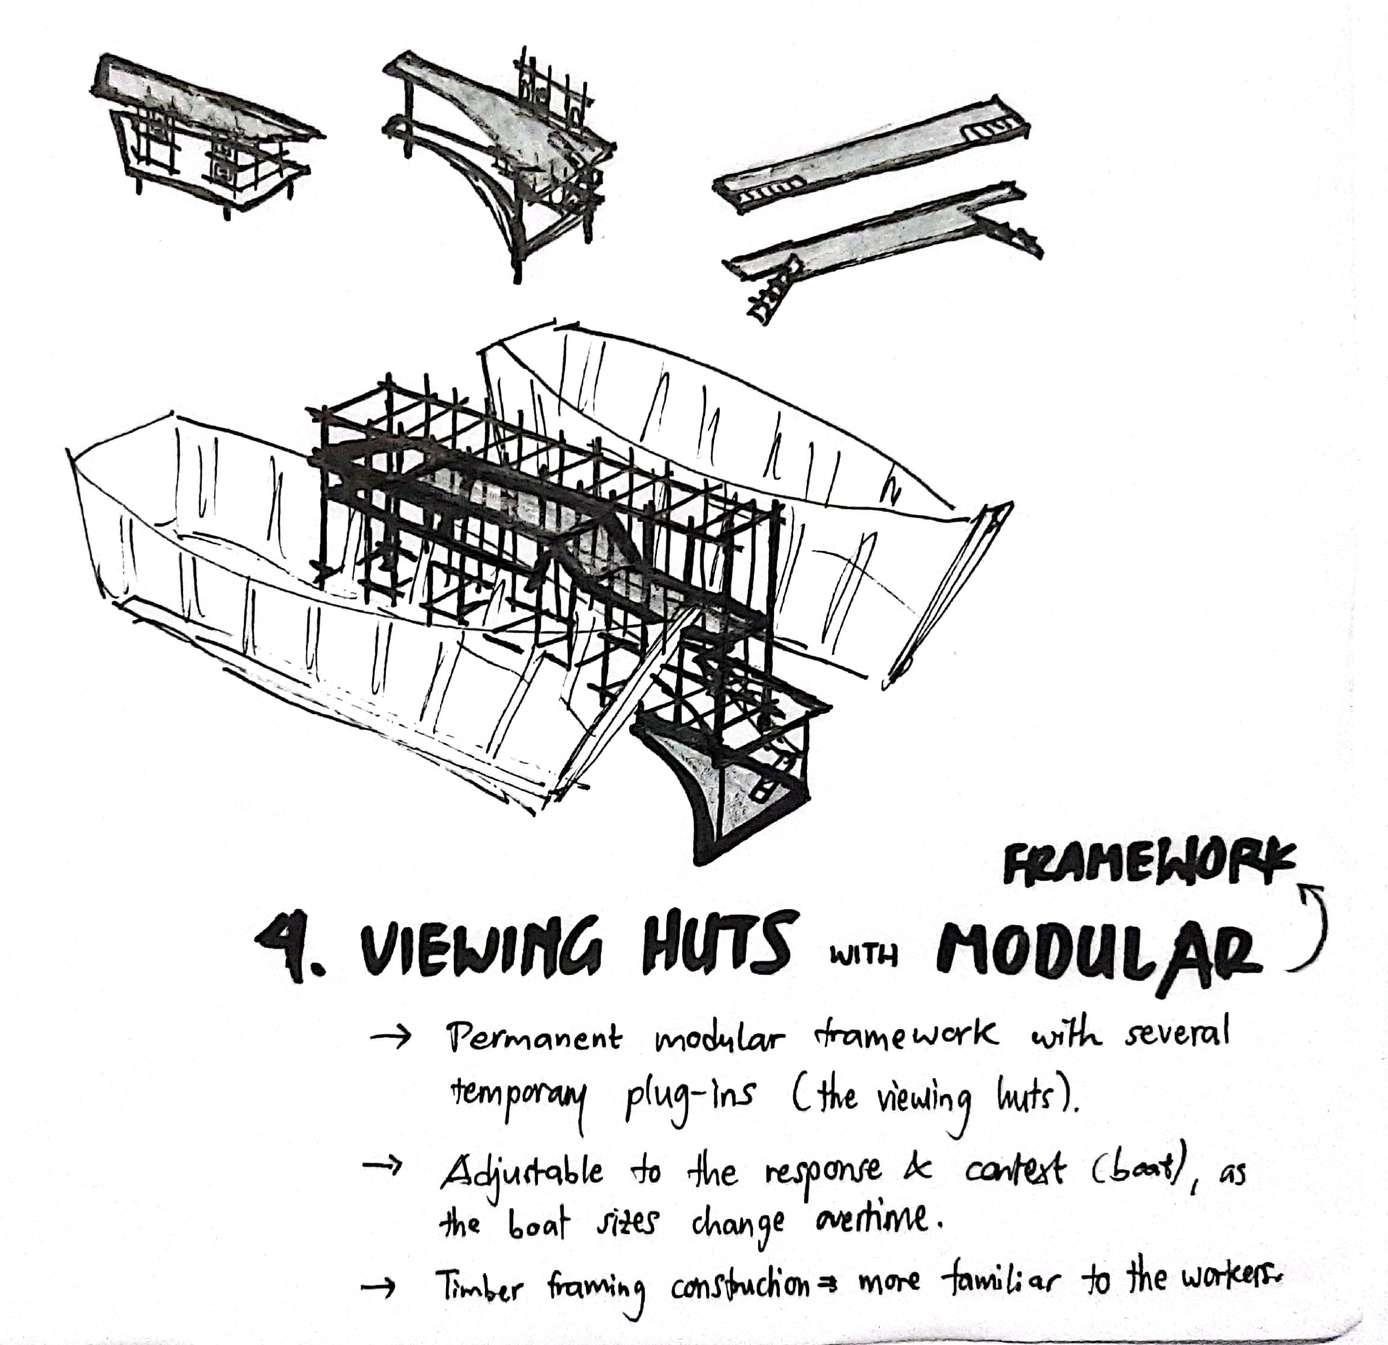 FRAMEWORK
4. VIEWING HUTS WITH MODULAR
→ Permanent modular framework with several
temporary plug-ins (the viewing huts).
→ Adjustable to the response & context (boat), as
the boat sizes change overtime.
→ Timber framing construction ⇒ more familiar to the workers.